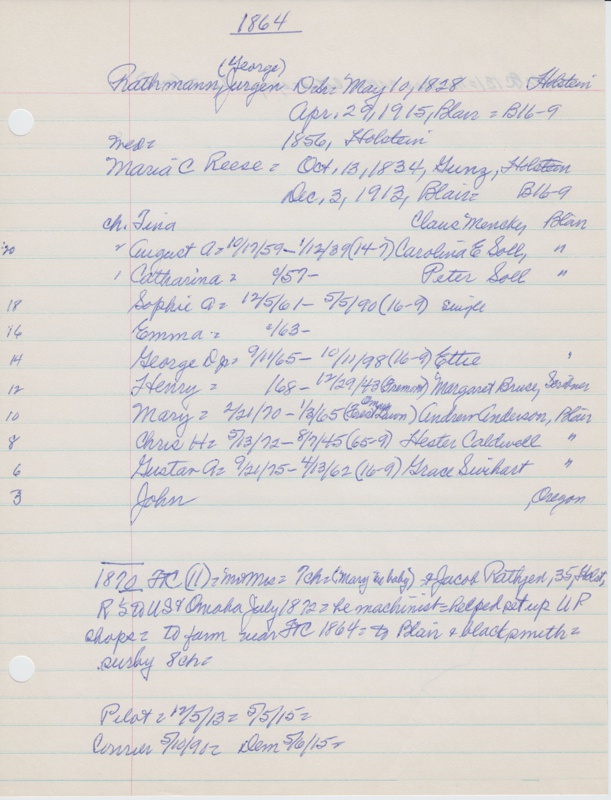 1864
(George)
Rathmann, Jurgen = May 10, 1828 Holstein
Apr. 29, 1915, Blair = B16-9
med = 1856, Holstein
Maria C Reese = Oct, 13, 1834, Gunz, Holstein
Dec, 3, 1913, Blair = B16-9
ch. Tina Claus Mencke, Blair
20 " August A = 10/17/59 - 1/12/39 (14-7) Carolina E Soll, "
Catharina = c/57 - Peter Soll "
18 Sophie A = 12/5/61 - 5/5/90 (16-9) single
16 Emma = c/63 -
14 George D jr = 9/11/65 - 10/11/98 (16-9) Ettie "
12 Henry = 168 - 12/29/43 (Fremont) Margaret Bruce, Scribner
10 Mary = 2/21/70 - 1/3/65 (Lawn) Andrew Anderson, Blair
8 Chris H = 5/13/72 - 8/7/45 (65-9) Hester Caldwell "
6 Gustav A = 9/21/75 - 4/13/62 (16-9) Grace Swihart "
3 John Oregon
1870 FtC (11) = "mr & Mrs = 7ch = ("Mary the baby") & Jacob Rathjen, 35, Holst,
R 5 to US & Omaha July 1872 = he machinist = helped set up UP
shops = to farm near FtC 1864 = to Blair & blacksmith =
survby 8ch =
Pilot = 12/5/13 = 5/5/15 =
Courier 5/10/90 = Dem 5/6/15 =